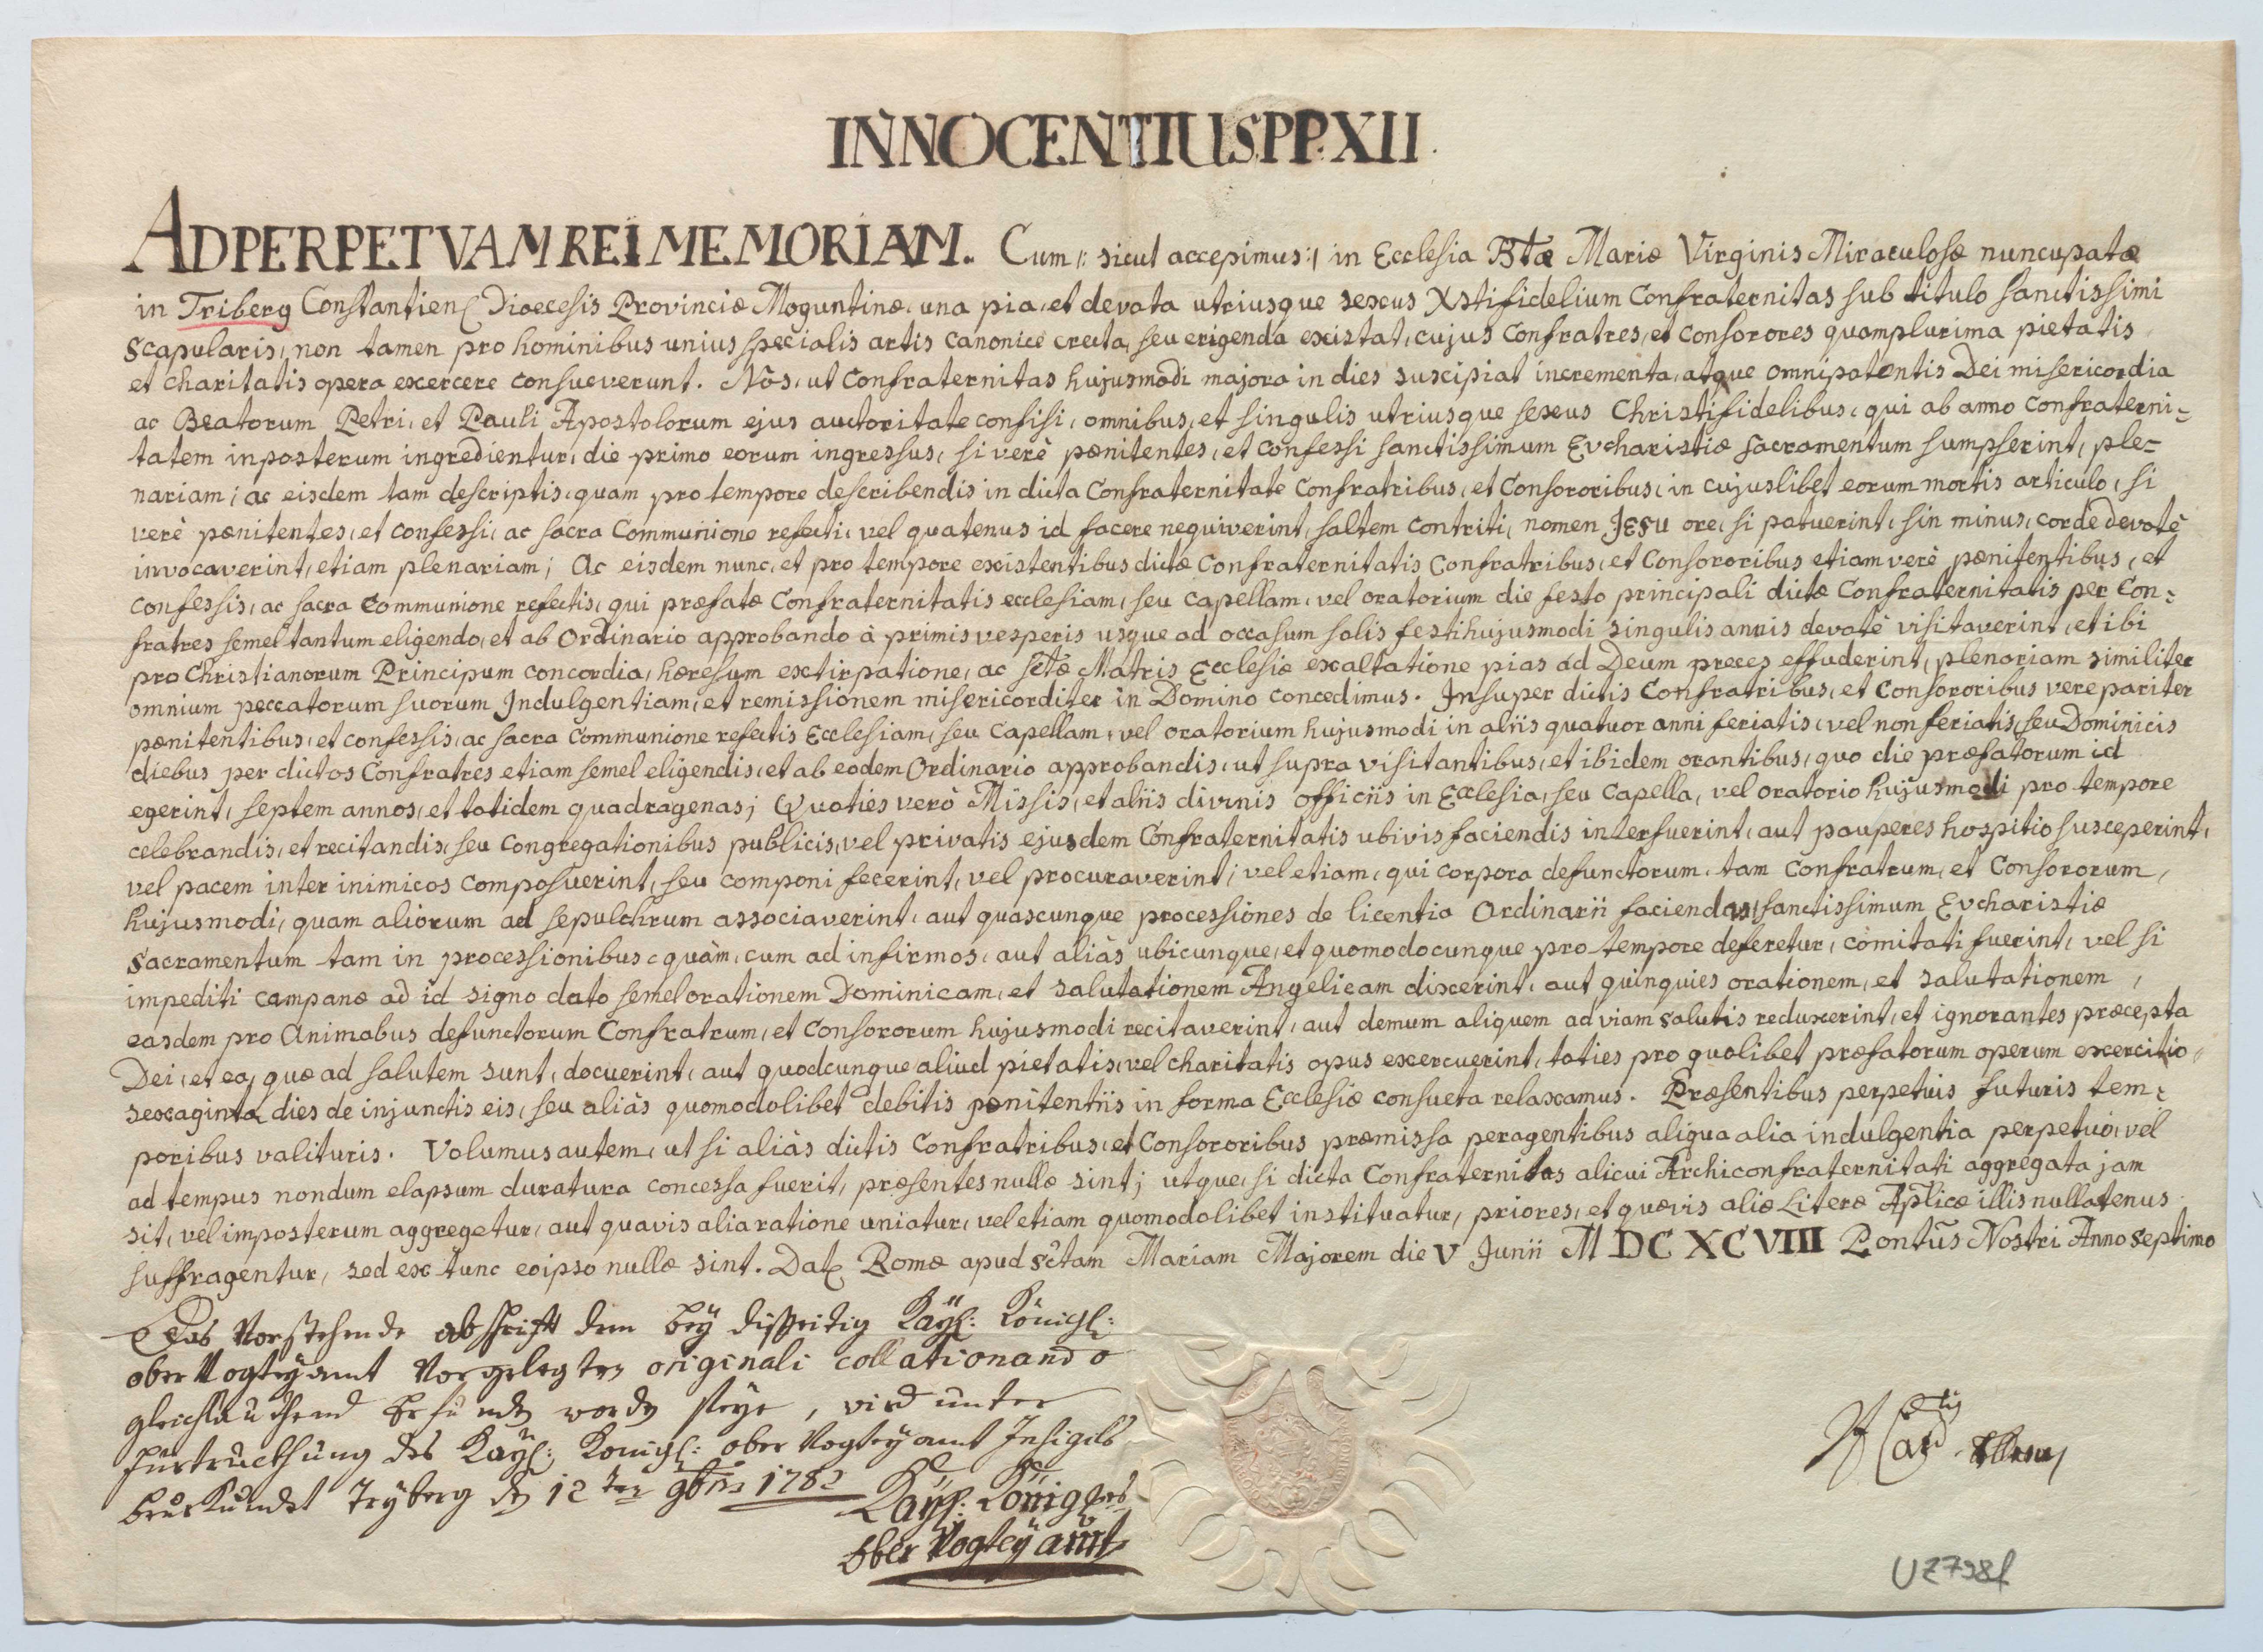 INNOCENTIUS PP. XII.
AD PERPETVAM REI MEMORIAM. Cum /: sicut accepimus :/ in Ecclesia Btæ Mariæ Virginis Miraculosæ nuncupatæ
in Triberg Constantien Dioecesis Provinciæ Moguntinæ, una pia, et devota utriusque sexus Xstifidelium Confraternitas sub titulo sanctissimi
Scapularis, non tamen pro hominibus unius specialis artis canonice erecta, seu erigenda existat, cujus Confratres, et Consorores quamplurima pietatis
et charitatis opera exercere consueverunt. Nos, ut Confraternitas hujusmodi majora in dies suscipiat incrementa, atque omnipotentis Dei misericordia
ac Beatorum Petri, et Pauli Apostolorum ejus auctoritate confisi, omnibus, et singulis utriusque sexus Christifidelibus, qui ab anno Confraterni-
tatem inposterum ingredientur, die primo eorum ingressus, si verè pænitentes, et confessi sanctissimum Evcharistiæ sacramentum sumpserint, ple-
nariam; ac eisdem tam descriptis, quam pro tempore describendis in dicta Confraternitate Confratribus, et Consororibus, in cujuslibet eorum mortis articulo, si
verè pænitentes, et confessi, ac sacra Communione refecti, vel quatenus id facere nequiverint, saltem contriti, nomen Jesu ore, si potuerint, sin minus, corde devotè
invocaverint, etiam plenariam; Ac eisdem nunc, et pro tempore existentibus dictæ Confraternitatis Confratribus, et Consororibus etiam verè pænitentibus, et
confessis, ac sacra Communione refectis, qui præfatæ Confraternitatis ecclesiam, seu capellam, vel oratorium die festo principali dictæ Confraternitatis per Con-
fratres semel tantum eligendo, et ab Ordinario approbando à primis vesperis usque ad occasum solis festi hujusmodi singulis annis devotè visitaverint, et ibi
pro Christianorum Principum concordia, hæresum extirpatione, ac sctæ Matris Ecclesiæ exaltatione pias ad Deum preces effuderint, plenariam similiter
omnium peccatorum suorum Indulgentiam, et remissionem misericorditer in Domino concedimus. Insuper dictis Confratribus, et Consororibus vere pariter
pænitentibus, et confessis, ac sacra Communione refectis Ecclesiam, seu Capellam, vel oratorium hujusmodi in aliis quatuor anni feriatis, vel non feriatis, seu Dominicis
diebus per dictos Confratres etiam semel eligendis, et ab eodem Ordinario approbandis, ut supra visitantibus, et ibidem orantibus, quo die præfatorum id
egerint, septem annos, et totidem quadragenas; Quoties verò Missis, et aliis divinis officiis in Ecclesia, seu Capella, vel oratorio hujusmodi pro tempore
celebrandis, et recitandis, seu Congregationibus publicis, vel privatis ejusdem Confraternitatis ubivis faciendis interfuerint, aut pauperes hospitio susceperint,
vel pacem inter inimicos composuerint, seu componi fecerint, vel procuraverint; vel etiam, qui corpora defunctorum, tam Confratrum, et Consororum,
hujusmodi, quam aliorum ad sepulchrum associaverint, aut quascunque processiones de licentia Ordinarii faciendas, sanctissimum Evcharistiæ
sacramentum tam in processionibus, quàm, cum ad infirmos, aut aliàs ubicunque, et quomodocunque pro tempore deferetur, comitati fuerint, vel si
impediti campanæ ad id signo dato semel orationem Dominicam, et salutationem Angelicam dixerint, aut quinquies orationem, et salutationem,
easdem pro Animabus defunctorum Confratrum, et Consororum hujusmodi recitaverint, aut demum aliquem ad viam salutis reduxerint, et ignorantes præcepta
Dei, et ea, quæ ad salutem sunt, docuerint, aut quodcunque aliud pietatis, vel charitatis opus exercuerint, toties pro quolibet præfatorum operum exercitio
sexaginta dies de injunctis eis, seu aliàs quomodolibet debitis pænitentiis in forma Ecclesiæ consueta relaxamus. Præsentibus perpetuis futuris tem-
poribus valituris. Volumus autem, ut si aliàs dictis Confratribus, et Consororibus præmissa peragentibus aliqua alia indulgentia perpetuò, vel
ad tempus nondum elapsum duratura concessa fuerit, præsentes nullæ sint; utque, si dicta Confraternitas alicui Archiconfraternitati aggregata jam
sit, vel imposterum aggregetur, aut quavis alia ratione uniatur, vel etiam quomodolibet instituatur, priores, et quævis aliæ Literæ Aplicæ illis nullatenus
suffragentur, sed ex tunc eoipso nullæ sint. Dat Romæ apud Sctam Mariam Majorem die V Junii MDCXCVIII Pontũs Nostri Anno Septimo
Das Vorstehende abschrift dem bey disseitig Kaÿs: Königl:
ober Vogteyamt Vorgelegten originali collationando
gleichlauthend befunden worden seye, wird unter
fürtruckhung des Kaÿs: Königl: ober Vogteyamt Insigils
beurkundet Tryberg den 12ten 9bris 1782
Kaÿs: Königles
ober Vogteÿ amt
Card
UZ798f